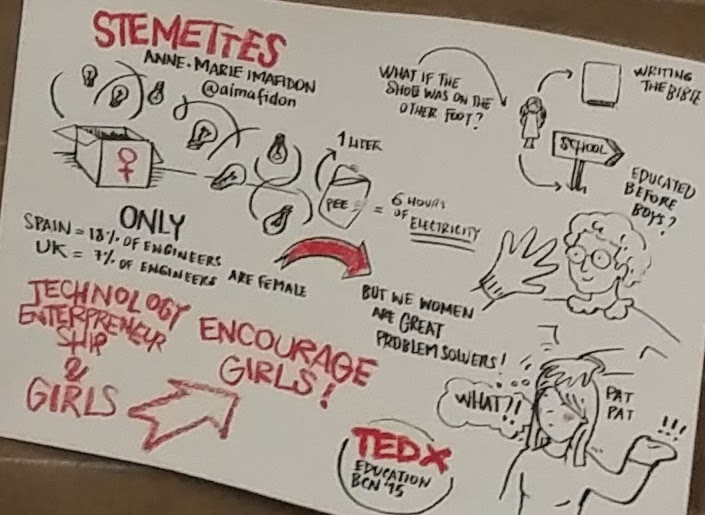 STEMETTES
ANNE-MARIE IMAFIDON
@aimafidon
WHAT IF THE
SHOE WAS ON THE
OTHER FOOT?
WRITING
THE BIBLE
SCHOOL
EDUCATED
BEFORE
BOYS?
1 LITER
PEE = 6 HOURS
OF
ELECTRICITY
ONLY
SPAIN = 18% OF ENGINEERS
UK = 7% OF ENGINEERS ARE FEMALE
BUT WE WOMEN
ARE GREAT
PROBLEM SOLVERS!
TECHNOLOGY
ENTERPRENEUR
SHIP
&
GIRLS
ENCOURAGE
GIRLS!
WHAT?!
PAT
PAT
!!!
TEDX
EDUCATION
BCN '15